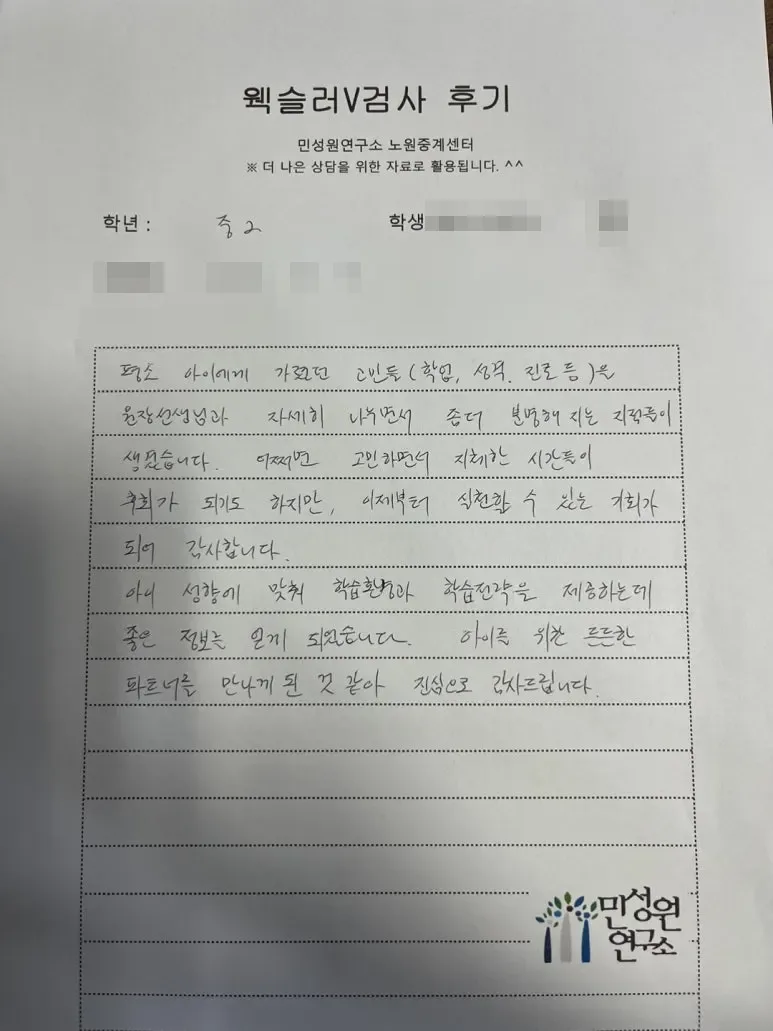 웩슬러V검사 후기
민성원연구소 노원중계센터
※ 더 나은 상담을 위한 자료로 활용됩니다. ^^
학년 : 중2 학생
평소 아이에게 가졌던 고민들(학업, 성격, 진로 등)을
원장선생님과 자세히 나누면서 좀더 분명해지는 지점들이
생겼습니다. 어쩌면 고민하면서 지체한 시간들이
후회가 되기도 하지만, 이제부터 실천할 수 있는 기회가
되어 감사합니다.
아이 성향에 맞춰 학습환경과 학습전략을 제공하는데
좋은 정보를 얻게 되었습니다. 아이를 위한 든든한
파트너를 만나게 된 것 같아 진심으로 감사드립니다.
민성원
연구소